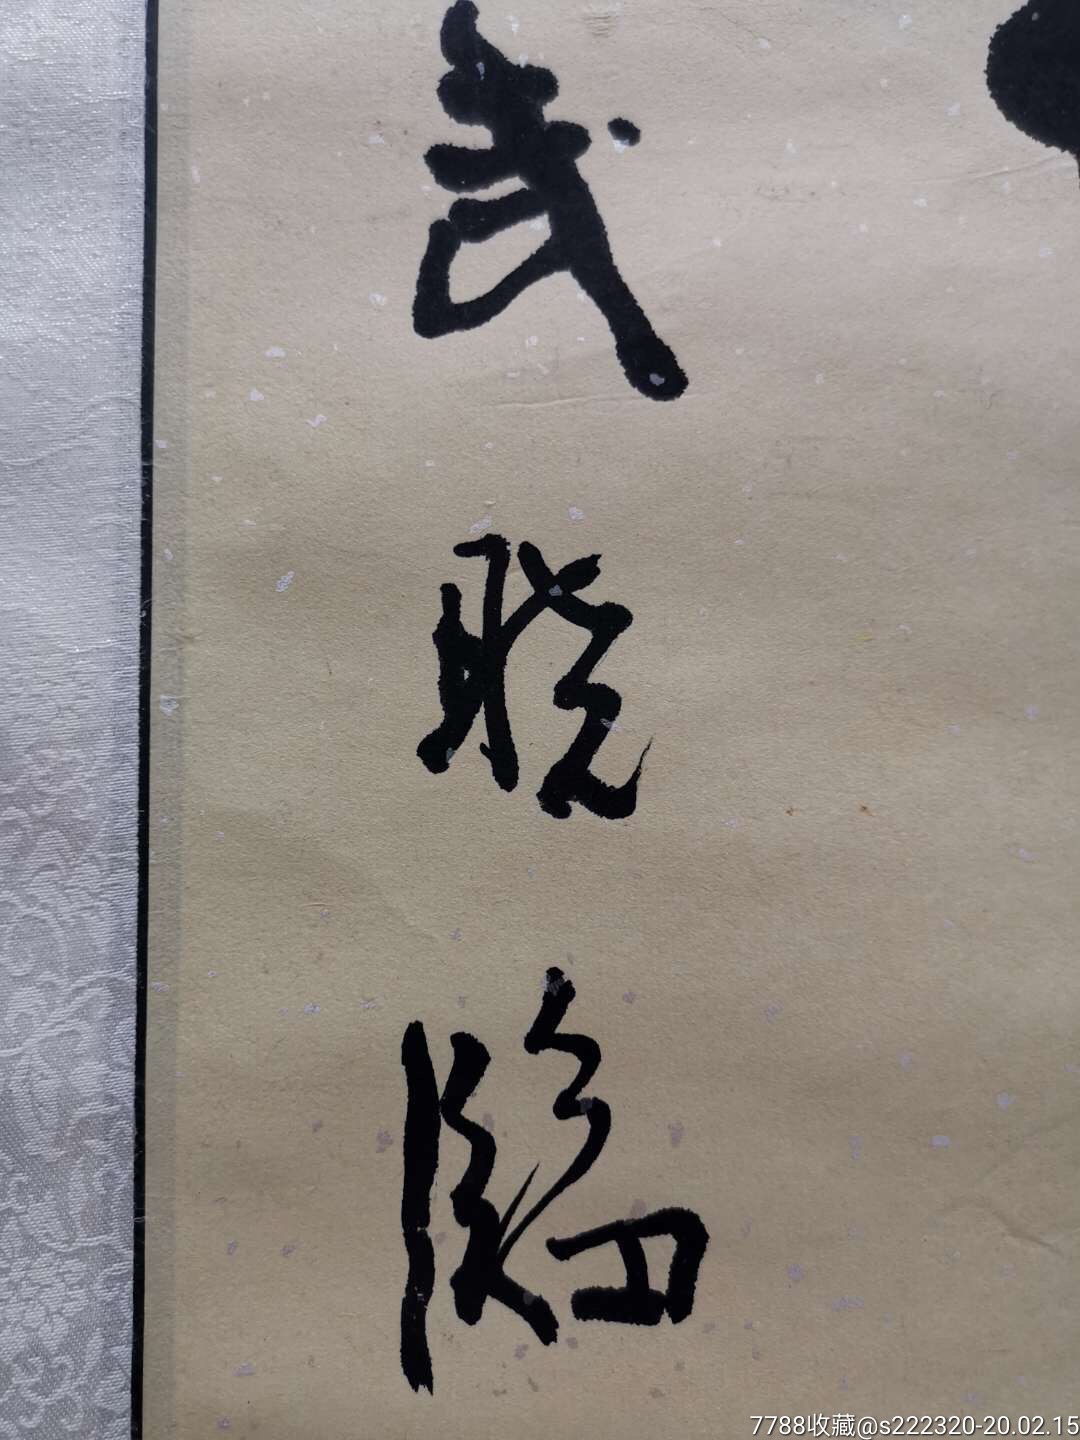 武晓临
7788收藏@s222320-20.02.15